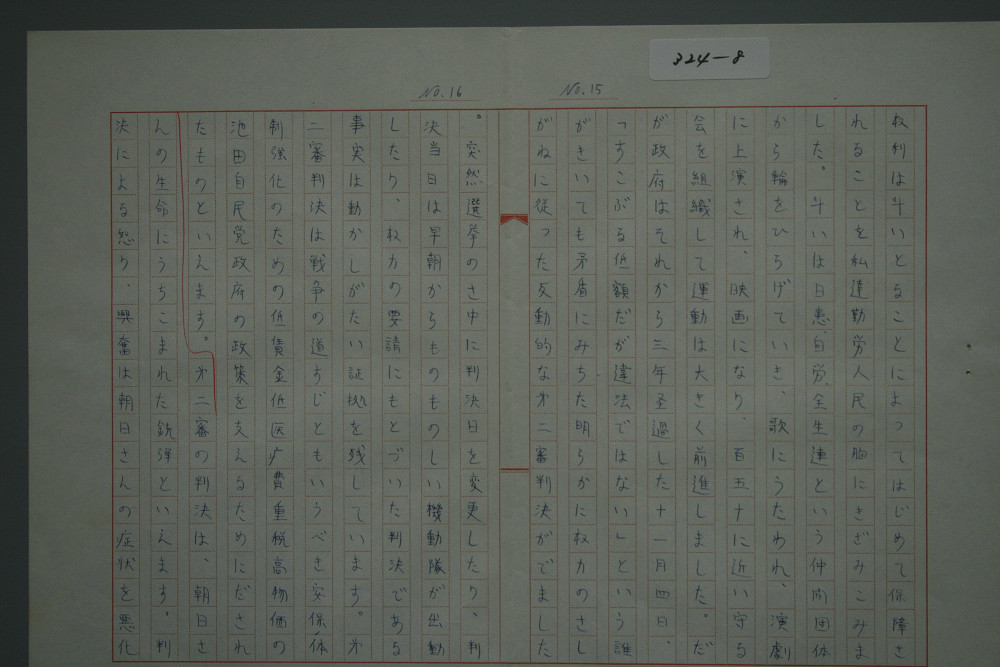 324-8
NO.15
权利は斗いとることによってはじめて保障さ
れることを私達勤労人民の胸にきざみこみま
した。斗いは日患、自労、全生連という仲间団体
から輪をひろげていき、歌にうたわれ、演劇
に上演され、映画になり、百五十に近い守る
会を組織して運動は大きく前進しました。だ
が政府はそれから三年圣過した十一月四日、
「すこぶる低額だが違法ではない」という誰
がきいても矛盾にみちた明らかに权力のさし
がねに従った反動的な才二審判決がでました
NO.16
。突然選挙のさ中に判決日を変更したり、判
決当日は早朝からものものしい機動隊が出動
したり、权力の要請にもとづいた判決である
事実は動かしがたい証拠を残しています。才
二審判決は戦争の道すじともいうべき安保体
制強化のための低賃金低医疗費重税高物価の
池田自民党政府の政策を支えるためにだされ
たものといえます。才二審の判決は、朝日さ
んの生命にうちこまれた銃弾といえます。判
決による怒り、興奮は朝日さんの症状を悪化